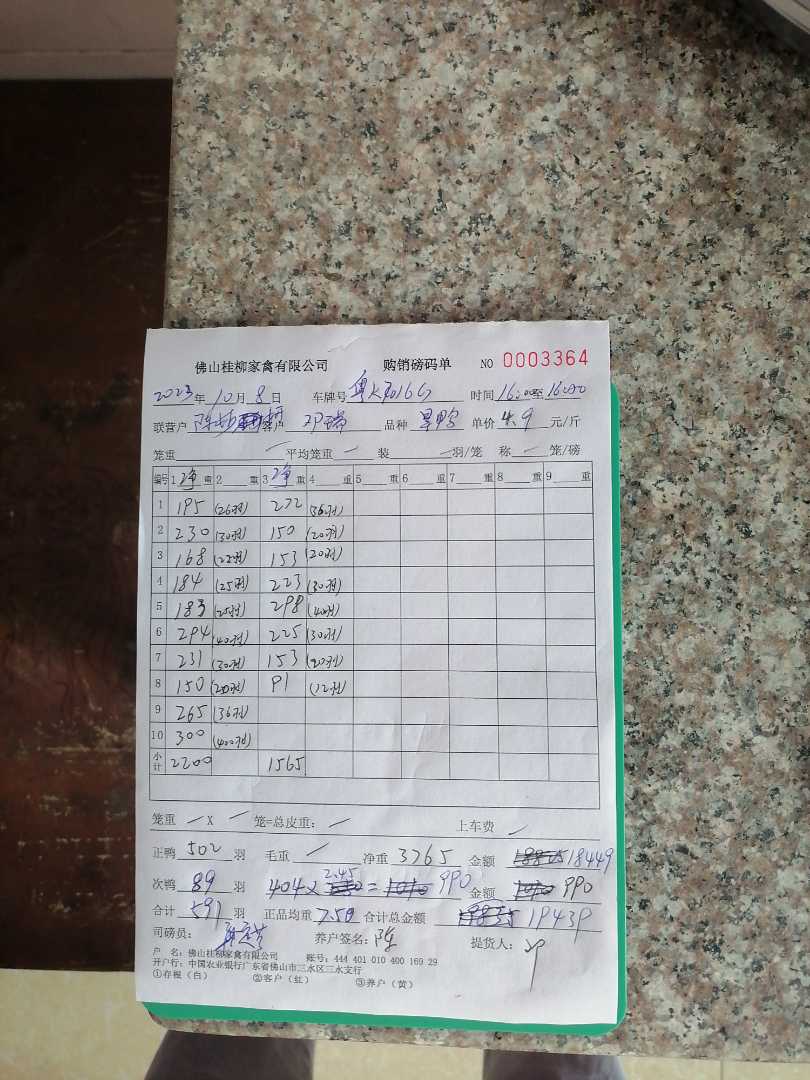 佛山桂柳家禽有限公司 购销磅码单 NO 0003364
2023年10月8日 车牌号 时间16:00至16:20
联营户 客户 邓瑞 品种 单价 4.9 元/斤
笼重 — 平均笼重 — 装 — 羽/笼 称 — 笼/磅
编号 1 净 重 2 重 3 净 重 4 重 5 重 6 重 7 重 8 重 9 重
1 195 (26羽) 272 (36羽)
2 230 (30羽) 150 (20羽)
3 168 (22羽) 153 (20羽)
4 184 (25羽) 223 (30羽)
5 183 (25羽) 298 (40羽)
6 294 (40羽) 225 (30羽)
7 231 (30羽) 153 (20羽)
8 150 (20羽) 91 (12羽)
9 265 (36羽)
10 300 (40羽)
小计 2200 1565
笼重 — X — 笼=总皮重: — 上车费 —
正鸭 502 羽 毛重 — 净重 3765 金额 18449
次鸭 89 羽 404× 2.45 = 990 金额 990
合计 591 羽 正品均重 7.50 合计总金额 19439
司磅员: 养户签名: 陈 提货人: 邓
户 名:佛山桂柳家禽有限公司 账号:444 401 010 400 169 29
开户行:中国农业银行广东省佛山市三水区三水支行
①存根(白) ②客户(红) ③养户(黄)